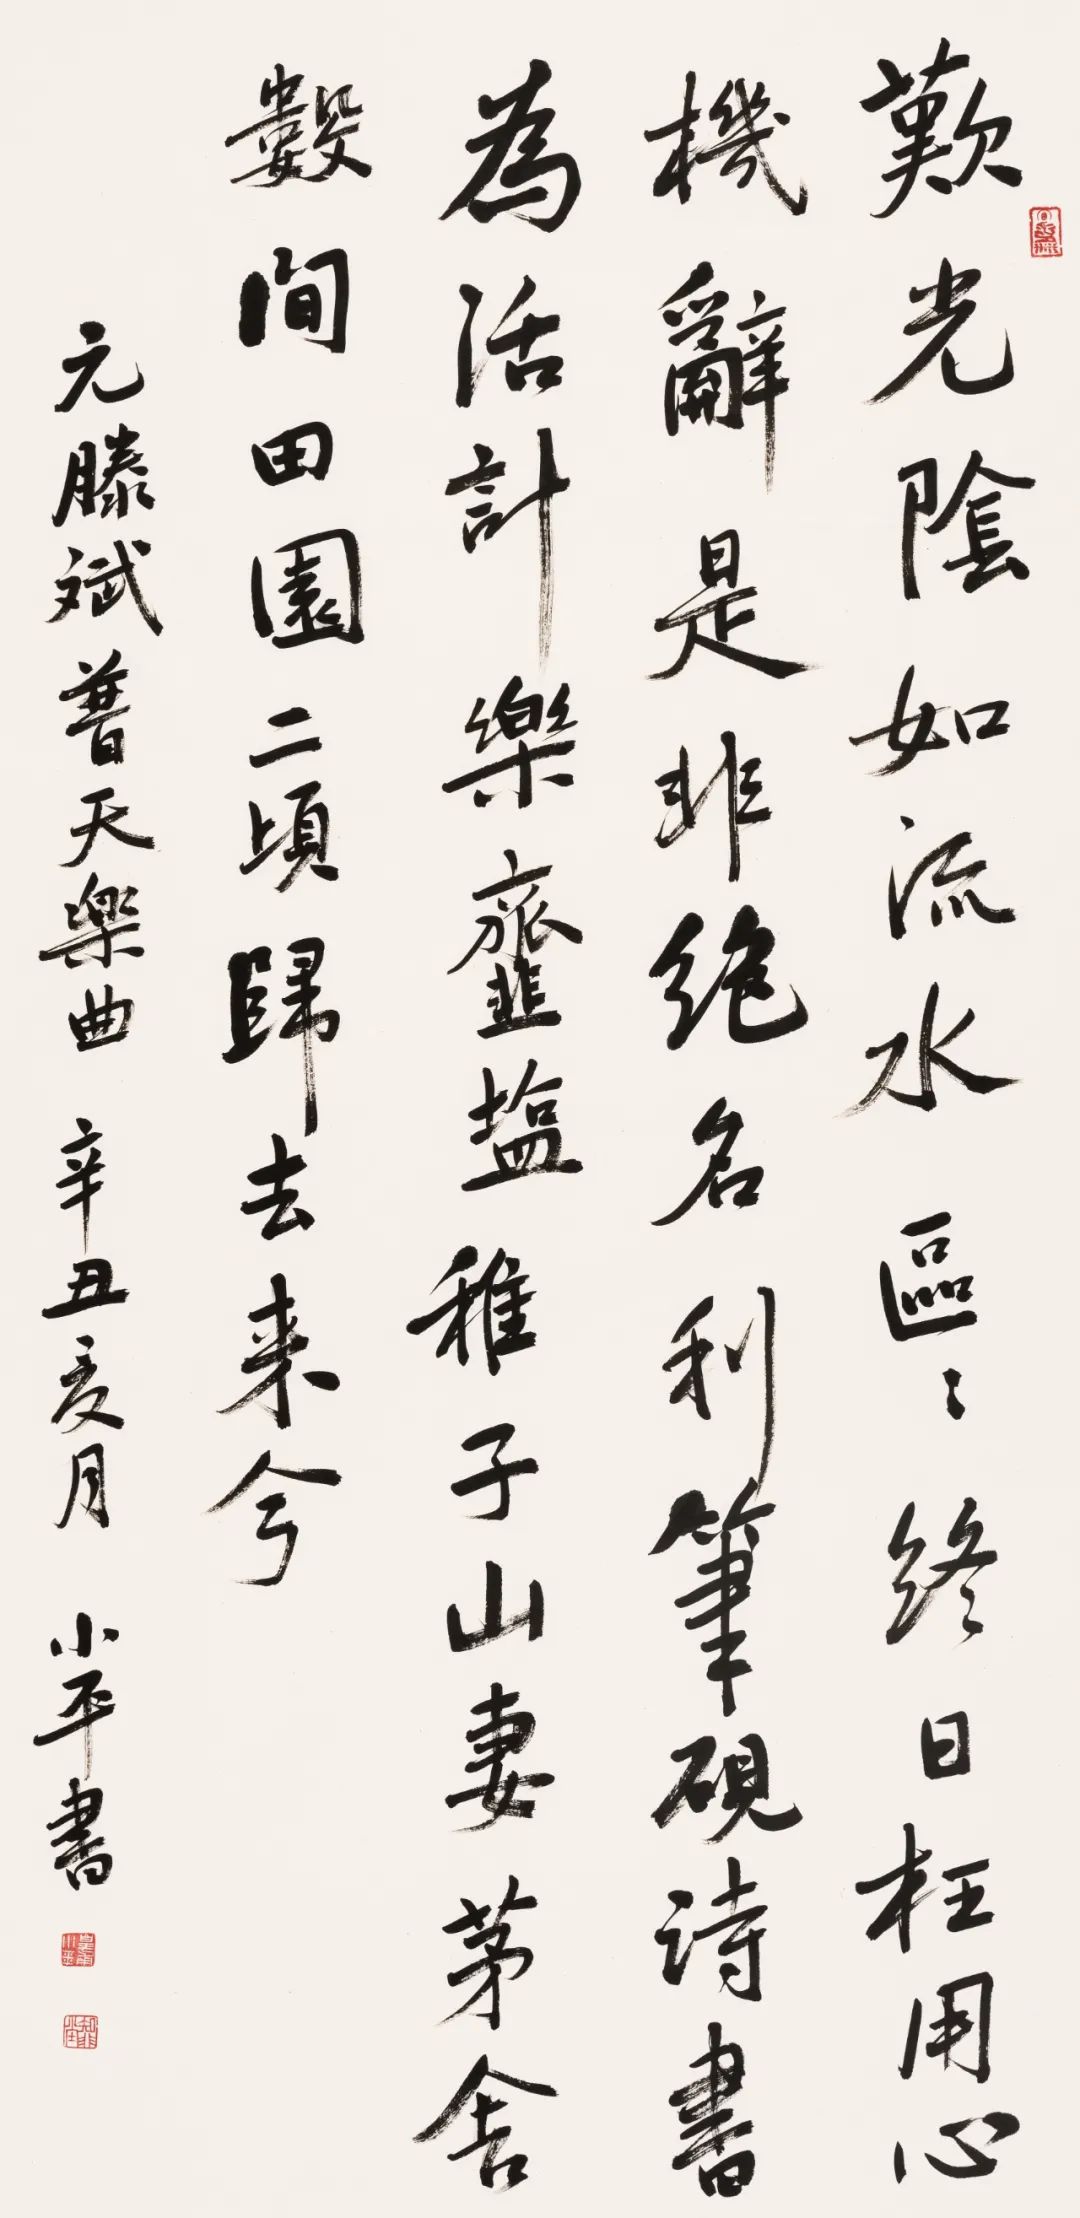 歎光陰如流水區〻終日枉用心
機辭是非絶名利筆硯詩書
為活計樂虀塩稚子山妻茅舍
數間田園二頃歸去来兮
元滕斌普天樂曲 辛丑亥月 小平書